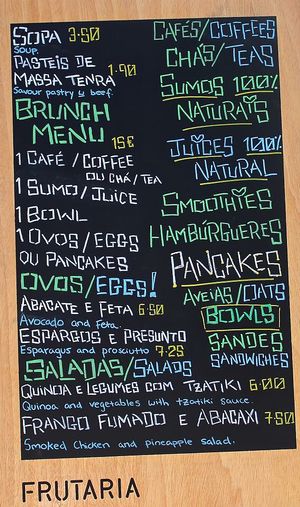 SOPA 3.50
Soup.
PASTEIS DE
MASSA TENRA 1.90
Savour pastry y beef.
BRUNCH
MENU 15€
1 CAFÉ / COFFEE
OU CHÁ / TEA
1 SUMO / JUICE
1 BOWL
1 OVOS / EGGS
OU PANCAKES
OVOS / EGGS!
ABACATE E FETA 6.50
Avocado and Feta.
ESPARGOS E PRESUNTO
Esparagus and prosciutto 7.25
SALADAS / SALADS
QUINOA E LEGUMES COM TZATIKI 6.00
Quinoa and vegetables with tzatiki sauce.
FRANGO FUMADO E ABACAXI 7.50
Smoked Chicken and pineapple salad.
CAFÉS / COFFEES
CHÁS / TEAS
SUMOS 100%
NATURAIS
JUICES 100%
NATURAL
SMOOTHIES
HAMBÚRGUERES
PANCAKES
AVEIAS / OATS
BOWLS
SANDES
SANDWICHES
FRUTARIA